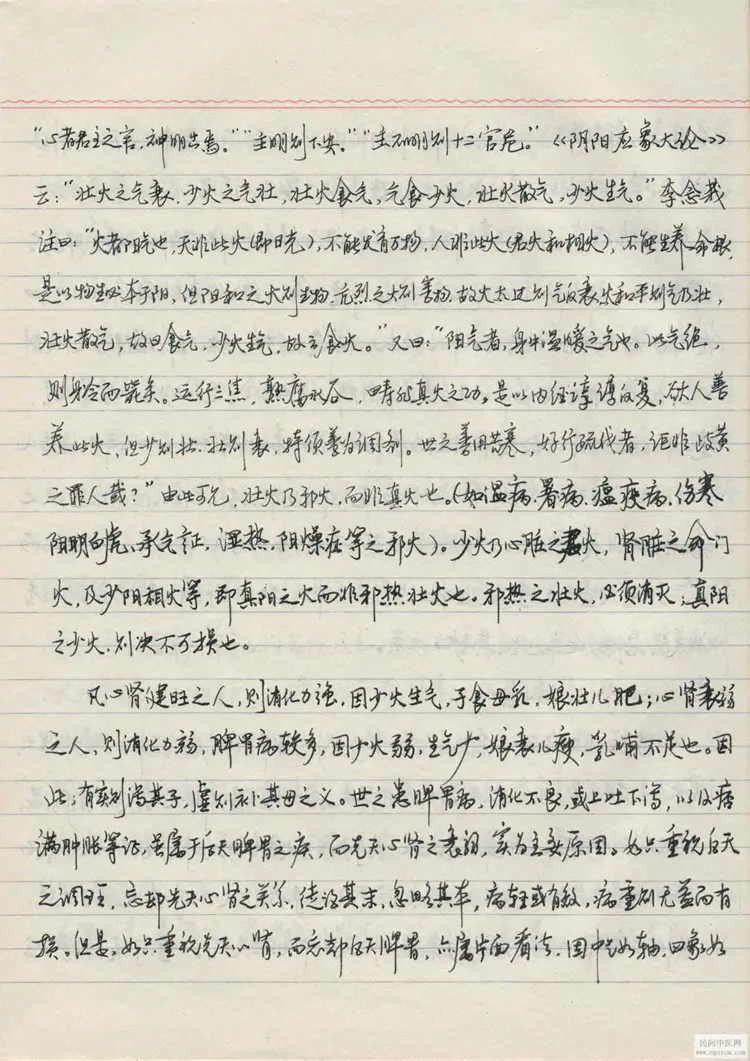 “心者君主之官，神明出焉。”“主明则下安。”“主不明则十二官危。”《阴阳应象大论》
云：“壮火之气衰，少火之气壮，壮火食气，气食少火，壮火散气，少火生气。”李念莪
注曰：“火都阳气也，天非此火(即日光)，不能发育万物，人非此火(君火和相火)，不能生养命根，
是以物生必本于阳，但阳和之火则生物，亢烈之火则害物，故火太过则气反衰，火和平则气乃壮，
壮火散气，故曰食气，少火生气，故云食火。”又曰：“阳气者，身中温暖之气也。此气绝，
则身冷而毙矣。运行三焦，熟腐水谷，畴非真火之功。是以内经谆谆反复，欲人善
养此火，但少则壮，壮则衰，特须善为调剂。世之善用苦寒，好行疏伐者，讵非岐黄
之罪人哉？”由此可见，壮火乃邪火，而非真火也。(如温病、暑病、瘟疫病、伤寒
阳明白虎、承气症，湿热，阳燥症等之邪火)。少火乃心脏之君火，肾脏之命门
火，及少阳相火等，即真阳之火而非邪热壮火也。邪热之壮火，必须消灭；真阳
之少火，则决不可损也。
凡心肾健旺之人，则消化力强，因少火生气，子食母乳，娘壮儿肥；心肾衰弱
之人，则消化力弱，脾胃病较多，因少火弱，生气少，娘衰儿瘦，乳哺不足也。因
此；有实则泻其子，虚则补其母之义。世之患脾胃病，消化不良，或上吐下泻，以及痞
满肿胀等证，虽属于后天脾胃之疾，而先天心肾之衰弱，实为主要原因。如只重视后天
之调理，忘却先天心肾之关系，徒治其末，忽略其本，病轻或有效，病重则无益而有
损。但是，如只重视先天心肾，而忘却后天脾胃，亦属片面看法，因中气如轴，四象如
民间中医网